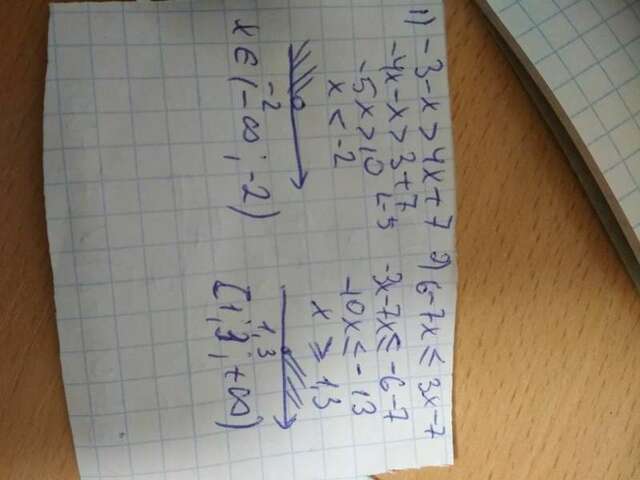 1) -3-x>4x+7
-4x-x>3+7
-5x>10 |:-5
x<-2
-2
x∈(-∞; -2)
2) 6-7x≤3x-7
-3x-7x≤-6-7
-10x≤-13
x≥1,3
1,3
[1,3; +∞)